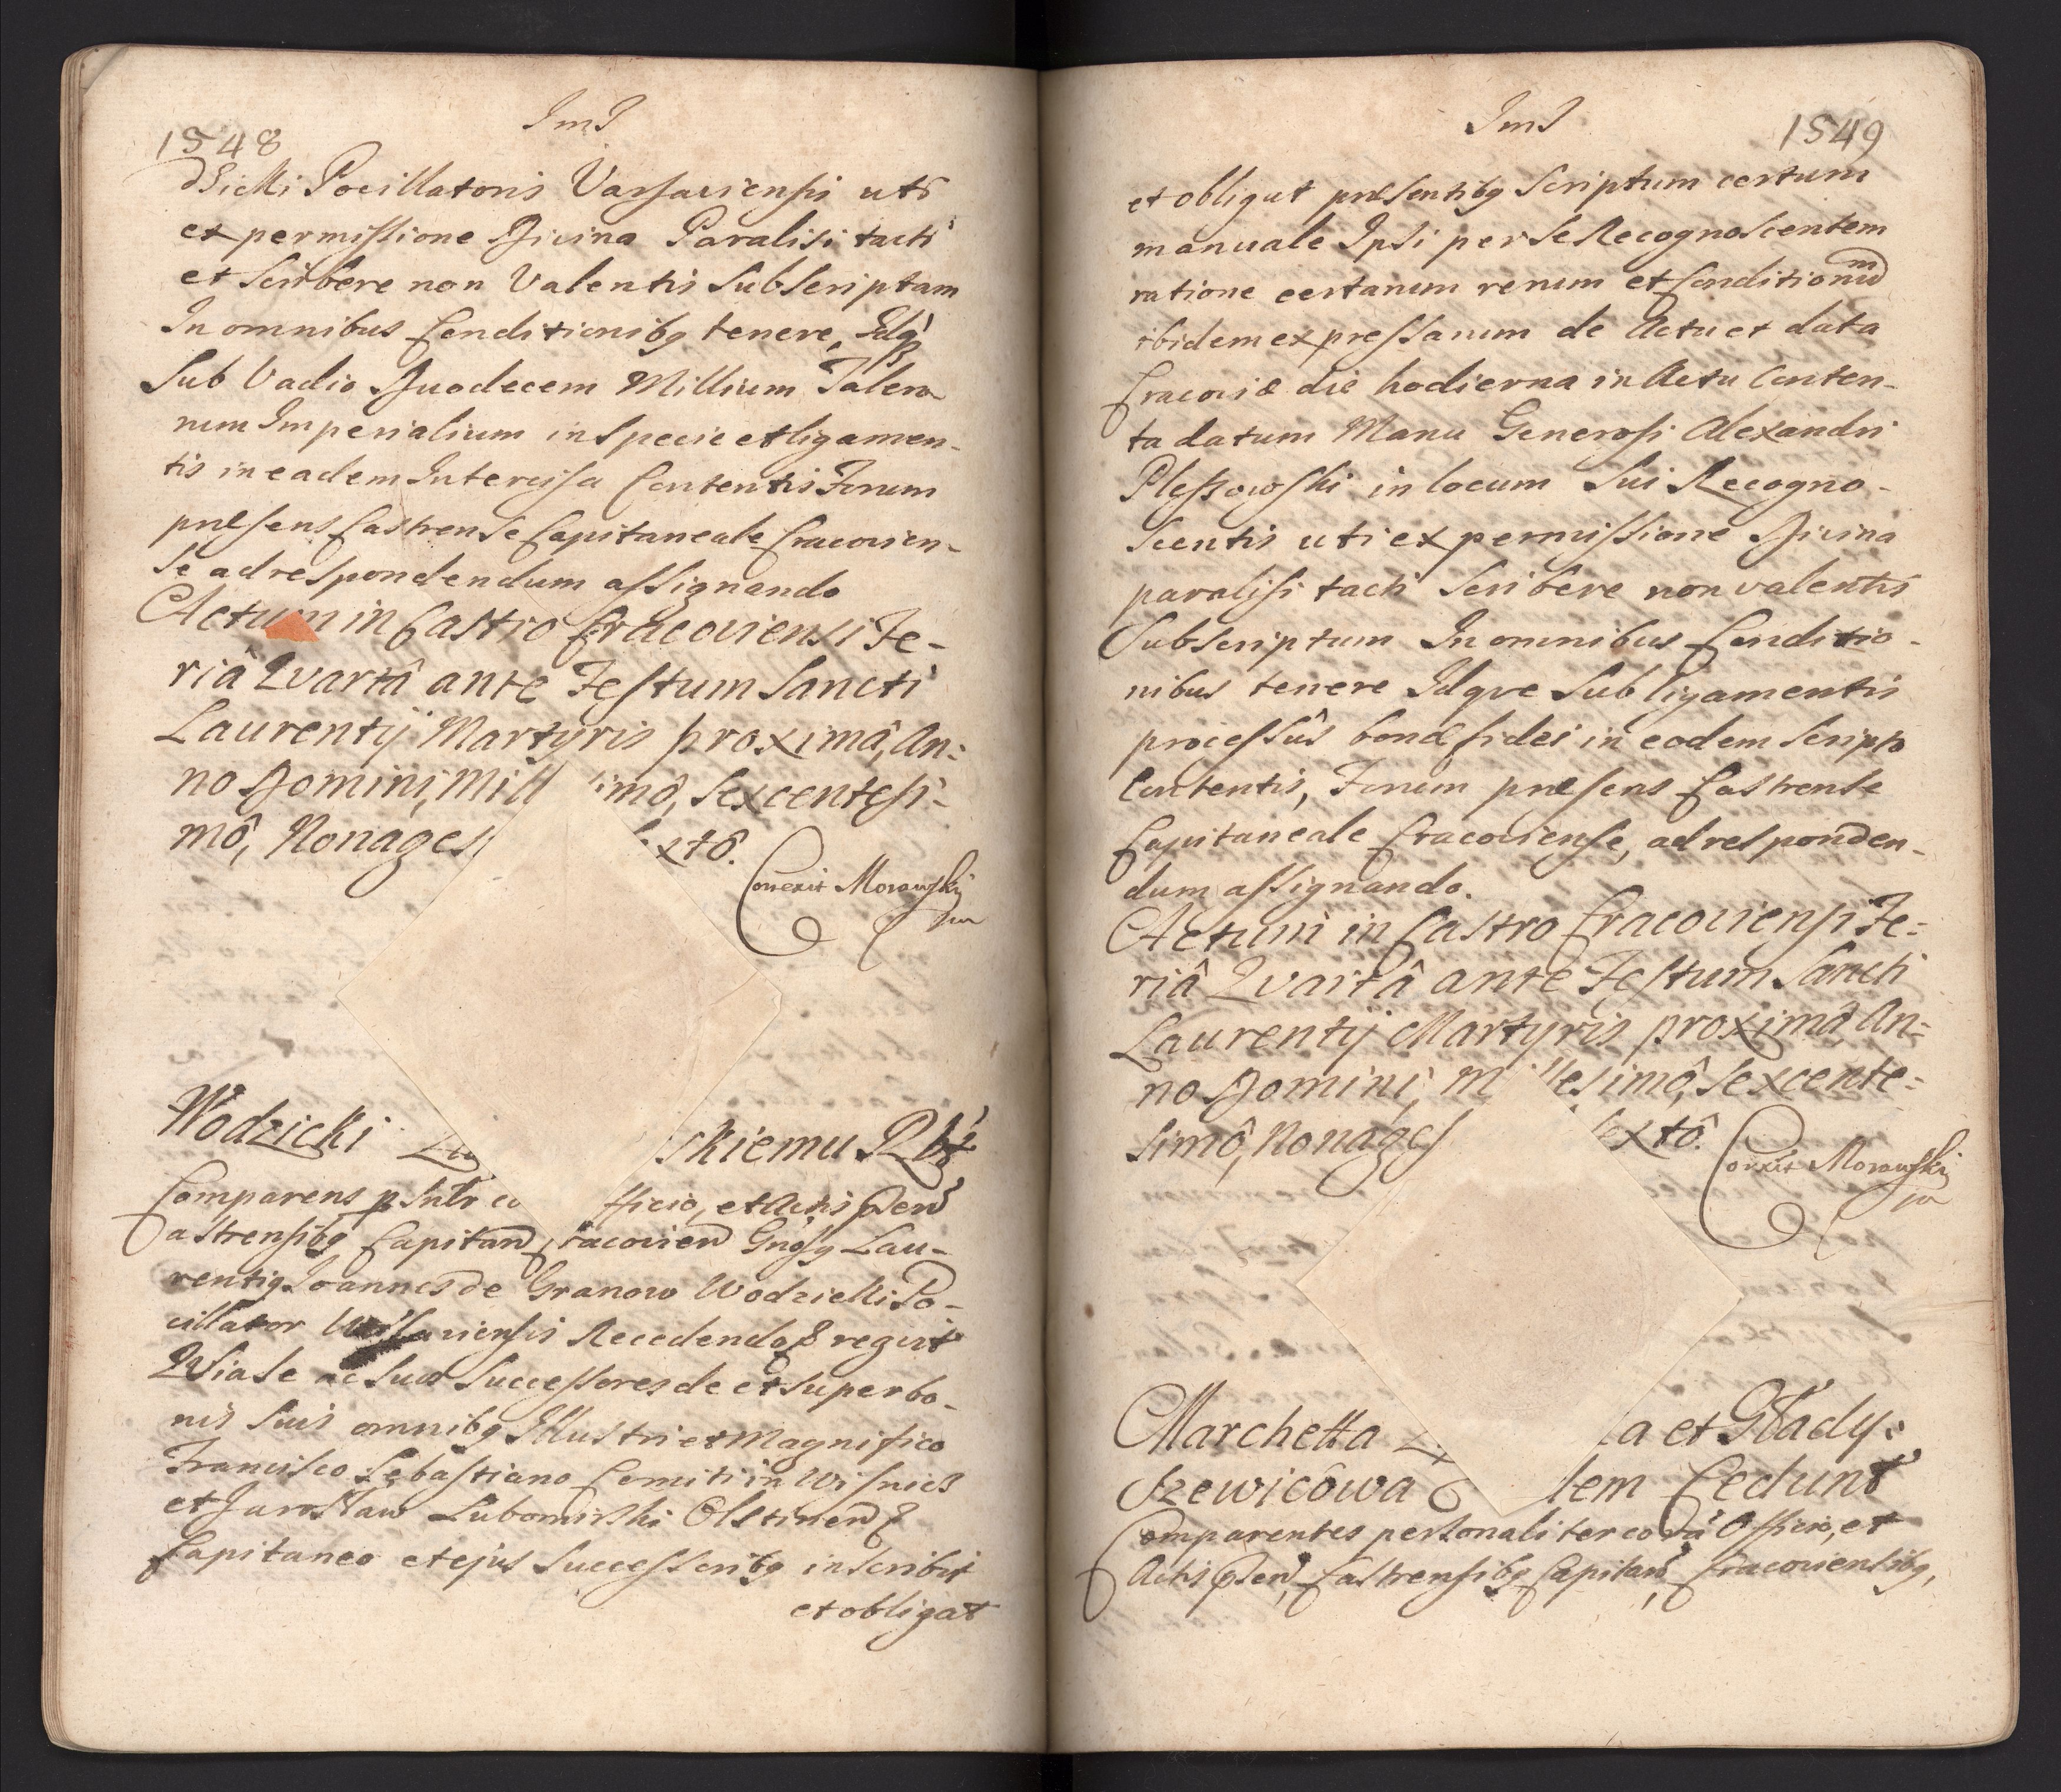 1548
ImJ
dzicki Pocillatoris Varsaviensis uti
ex permissione Divina Paralisi tacti
et scribere non Valentis Subscriptam
In omnibus Conditionibq tenere, Idq
Sub Vadio Duodecem Millium Talero
rum Imperialium in Specie et ligamen-
tis in eadem Intercisa Contentis Forum
præsens Castrense Capitaneale Cracovien-
se ad respondendum assignando
Actum in Castro Cracoviensi Fe-
riâ Qvartâ ante Festum Sancti
Laurentij Martyris proximâ, An:
no Domini, Mill imô, Sexcentesi-
mô, Nonages xtô.
Conexit Morawski
mp
Wodzicki Lu skiemu Rbt
Comparens p Sntr co fficio, et Actis Psen
astrensibq Capitan Cracovien Gnosq Lau-
rentiq Joannes de Granow Wodzicki Po-
cillator Varsaviensis Recedendo & regirt
Qvia Se ac Suos Successores de et super bo-
nis Suis omnibq Illustri et Magnifico
Francisco Sebastiano Comiti in Wisnicz
et Jarosław Lubomirski Olstinen &
Capitaneo et ejus Successoribq inscribit
et obligat
ImJ
1549
et obligat præsentibq Scriptum certum
manuale Ipsi per Se Recognoscentem
ratione certarum rerum et Conditionum
ibidem expressarum de Actu et data
Cracoviæ die hodierna in Actu Conten-
ta datum Manu Generosi Alexandri
Pleszowski in locum Sui Recogno-
scentis uti ex permissione Divina
paralisi tacti Scribere non valentis
Subscriptum In omnibus Conditio-
nibus tenere Idqve Sub ligamentis
processûs bonæ fidei in eodem Scripto
Contentis, Forum præsens Castrense
Capitaneale Cracoviense, ad responden-
dum assignando.
Actum in Castro Cracoviensi Fe:
riâ Qvartâ ante Festum Sancti
Laurentij Martyris proximâ An:
no Domini, M lesimô, Sexcente:
simô, Nonages extô.
Conexit Morawski
mp
Marchetta a et Głady:
Szewicowa dem Cedunt
Comparentes personaliter corā Officio, et
Actis Psen, Castrensibq Capitan, Cracoviensibq,